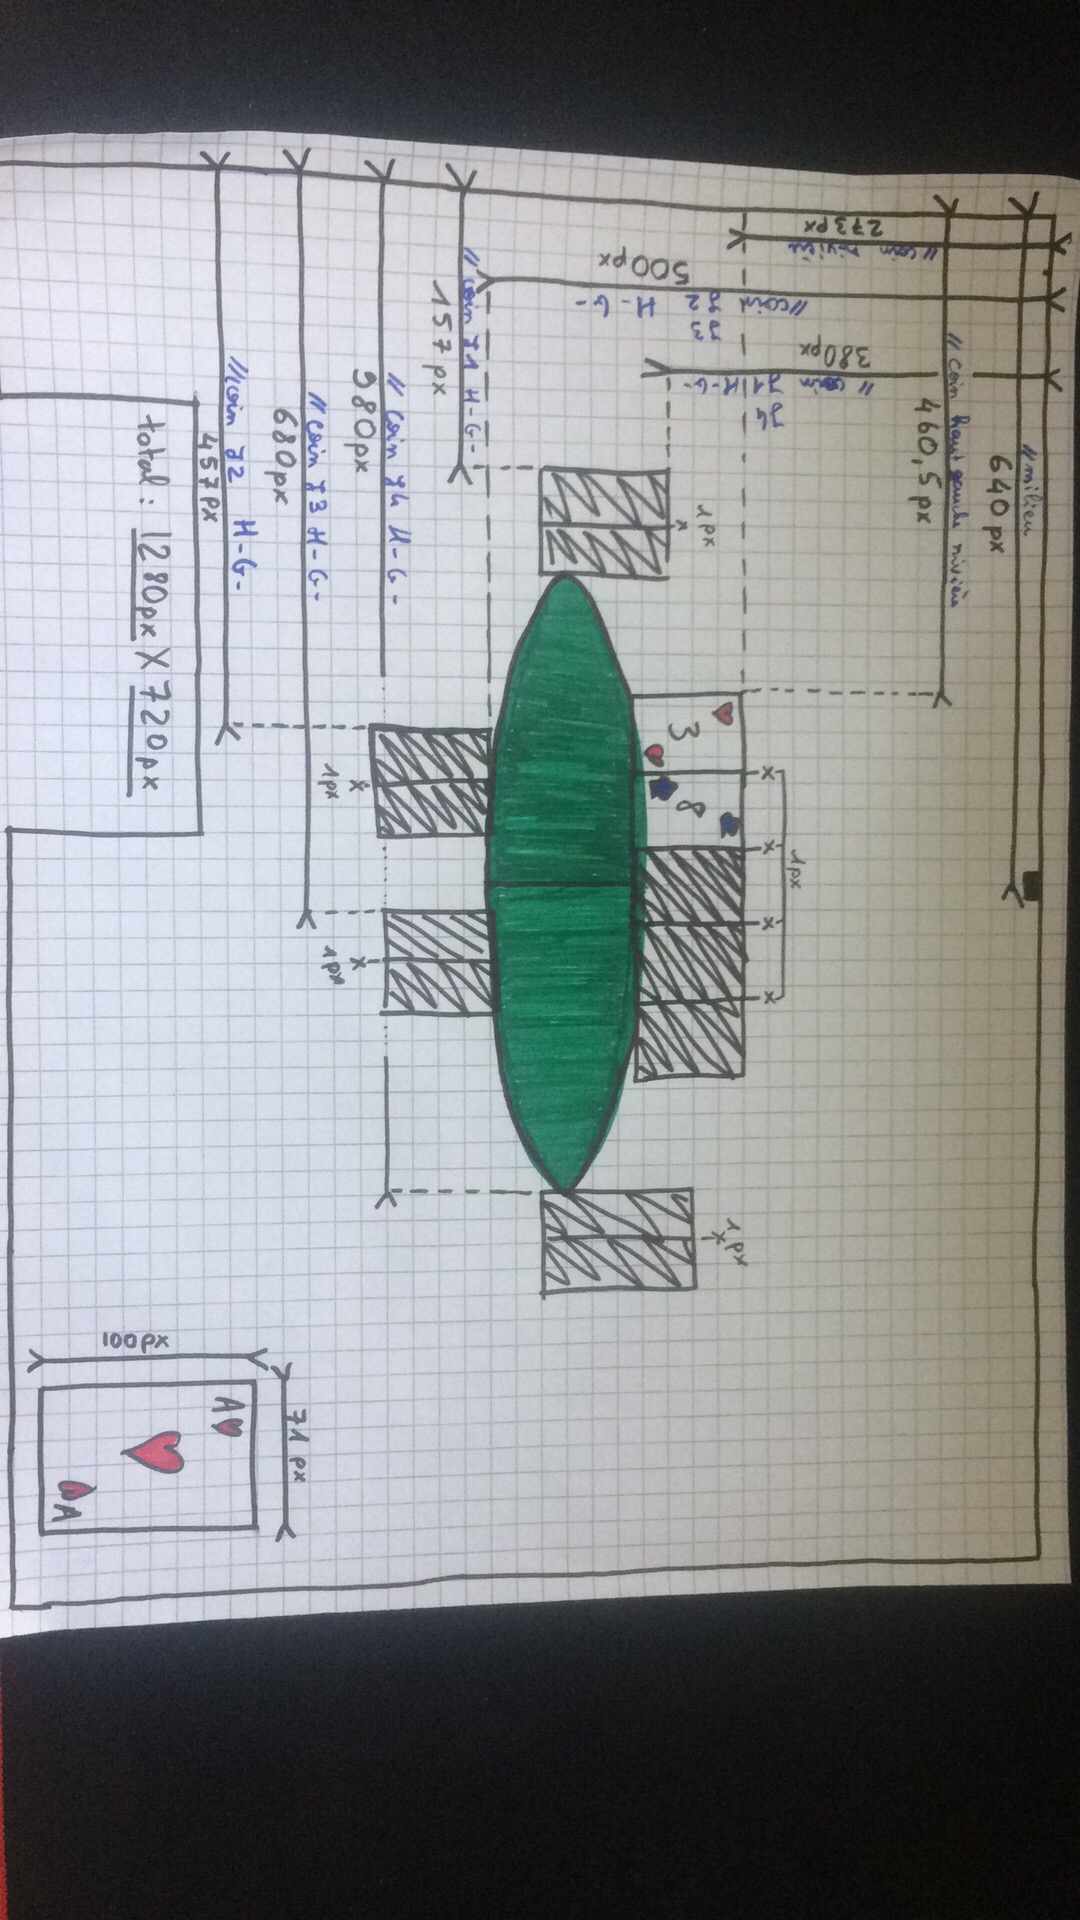 // milieu
640 px
// coin haut gauche rivière
460,5 px
// coin rivière
273 px
// coin J1 H-G-
J4
380px
// coin J2 H-G-
J3
500px
1px
1px
1px
3
8
// coin J1 H-G-
157 px
// coin J4 H-G-
980px
1px
1px
// coin J3 H-G-
680px
// coin J2 H-G-
457 PX
total : 1280px X 720px
71 px
100PX
A
A